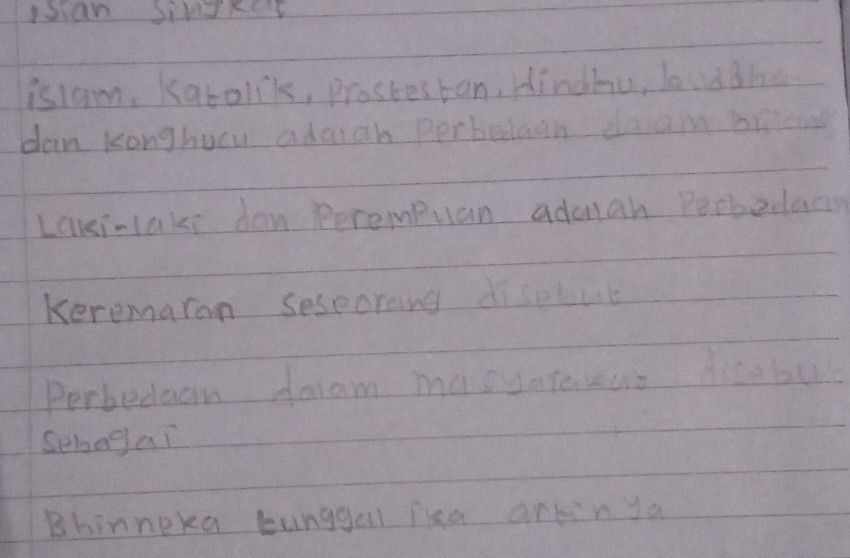 isian singkat
islam, Katolik, Prostestan, Hindhu, buddha
dan konghucu adalah Perbedaan dalam
Laki-laki dan Perempuan adalah Perbedaan
Keremaran seseorang disebut
Perbedaan dalam masyarakat disebu
Sebagai
Bhinneka tunggal ika artinya